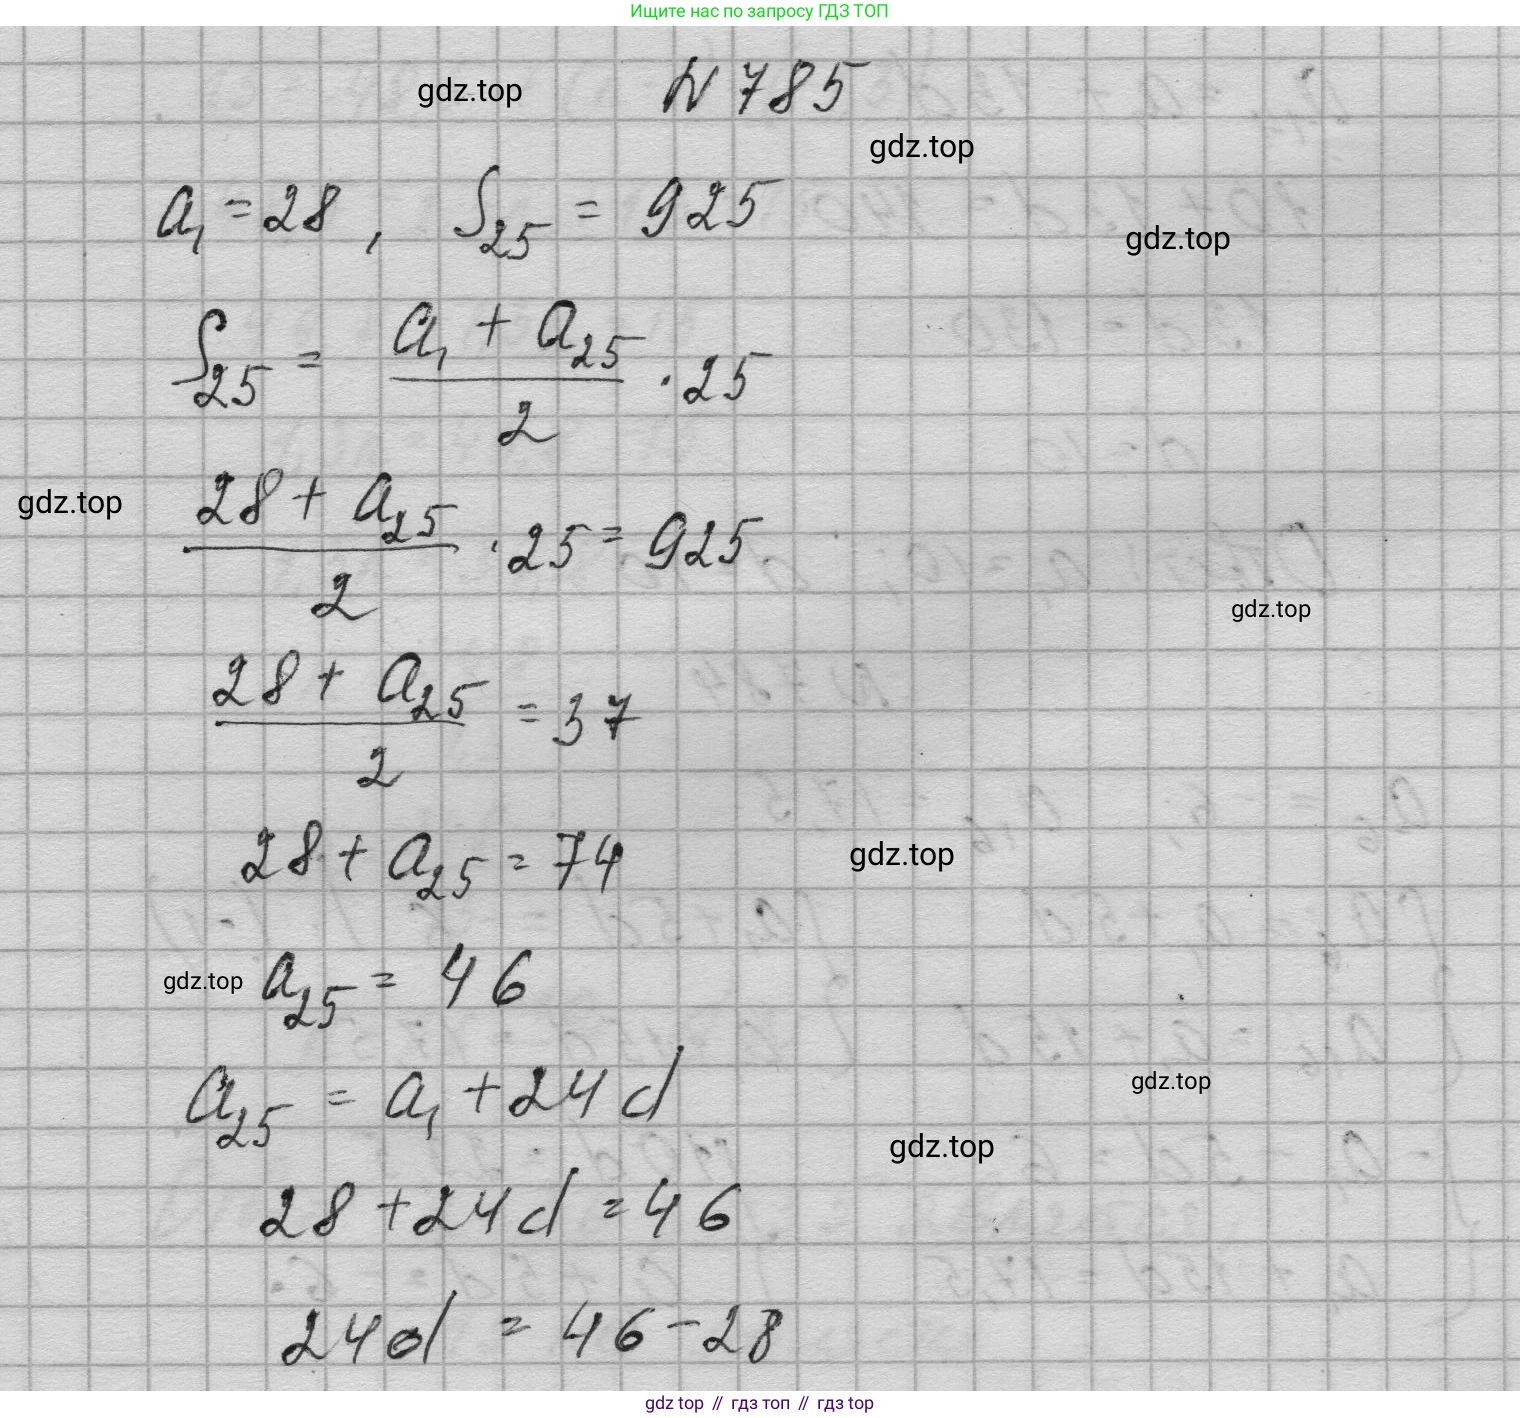 Ищите нас по запросу ГДЗ ТОП
gdz.top
N 785
gdz.top
a₁ = 28 , S₂₅ = 925
gdz.top
S₂₅ = (a₁ + a₂₅)/2 · 25
gdz.top
(28 + a₂₅)/2 · 25 = 925
gdz.top
(28 + a₂₅)/2 = 37
28 + a₂₅ = 74
gdz.top
gdz.top
a₂₅ = 46
a₂₅ = a₁ + 24d
gdz.top
gdz.top
28 + 24d = 46
24d = 46 - 28
gdz top // гдз топ // гдз top